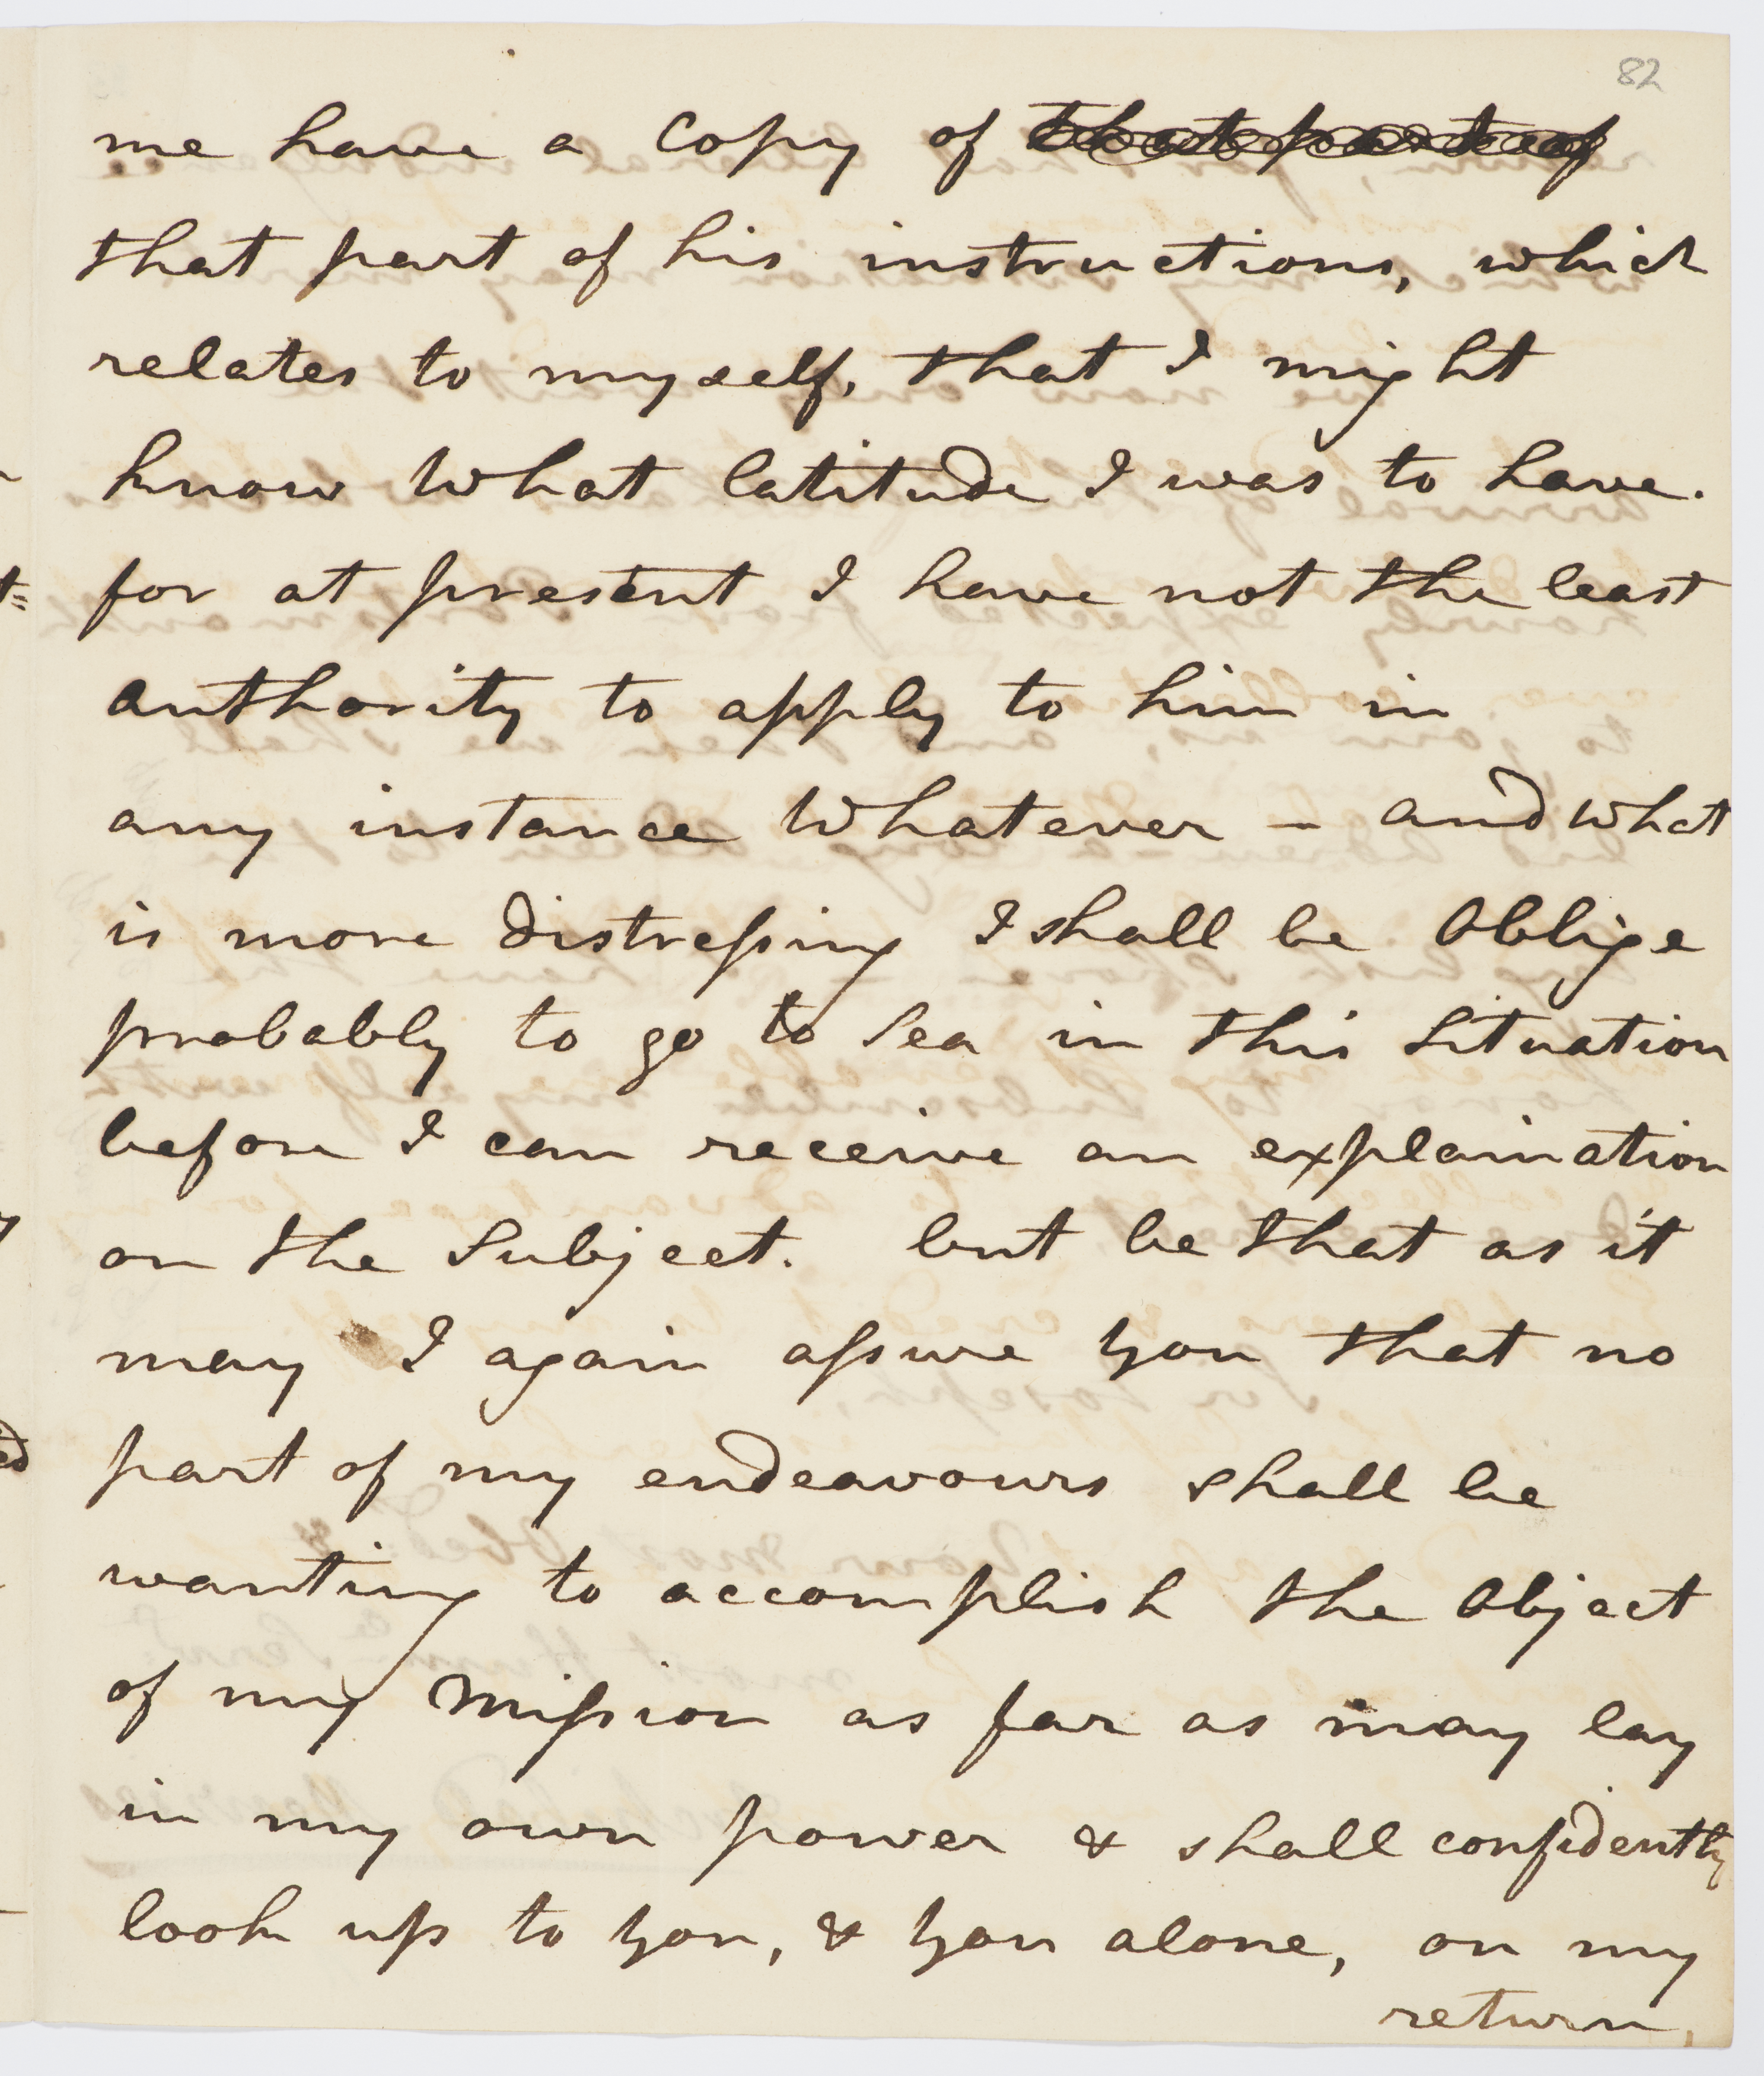 82
me have a Copy of that part of
that part of his instructions, which
relates to myself, that I might
know what latitude I was to have.
for at present I have not the least
authority to apply to him in
any instance whatever – and what
is more distreſsing I shall be Oblige
probably to go to Sea in this Situation
before I can receive an explaination
on the Subject. but be that as it
may I again aſsure you that no
part of my endeavours shall be
wanting to accomplish the Object
of my Miſsion as far as may lay
in my own power & shall confidently
look up to you, & you alone, on my
return,